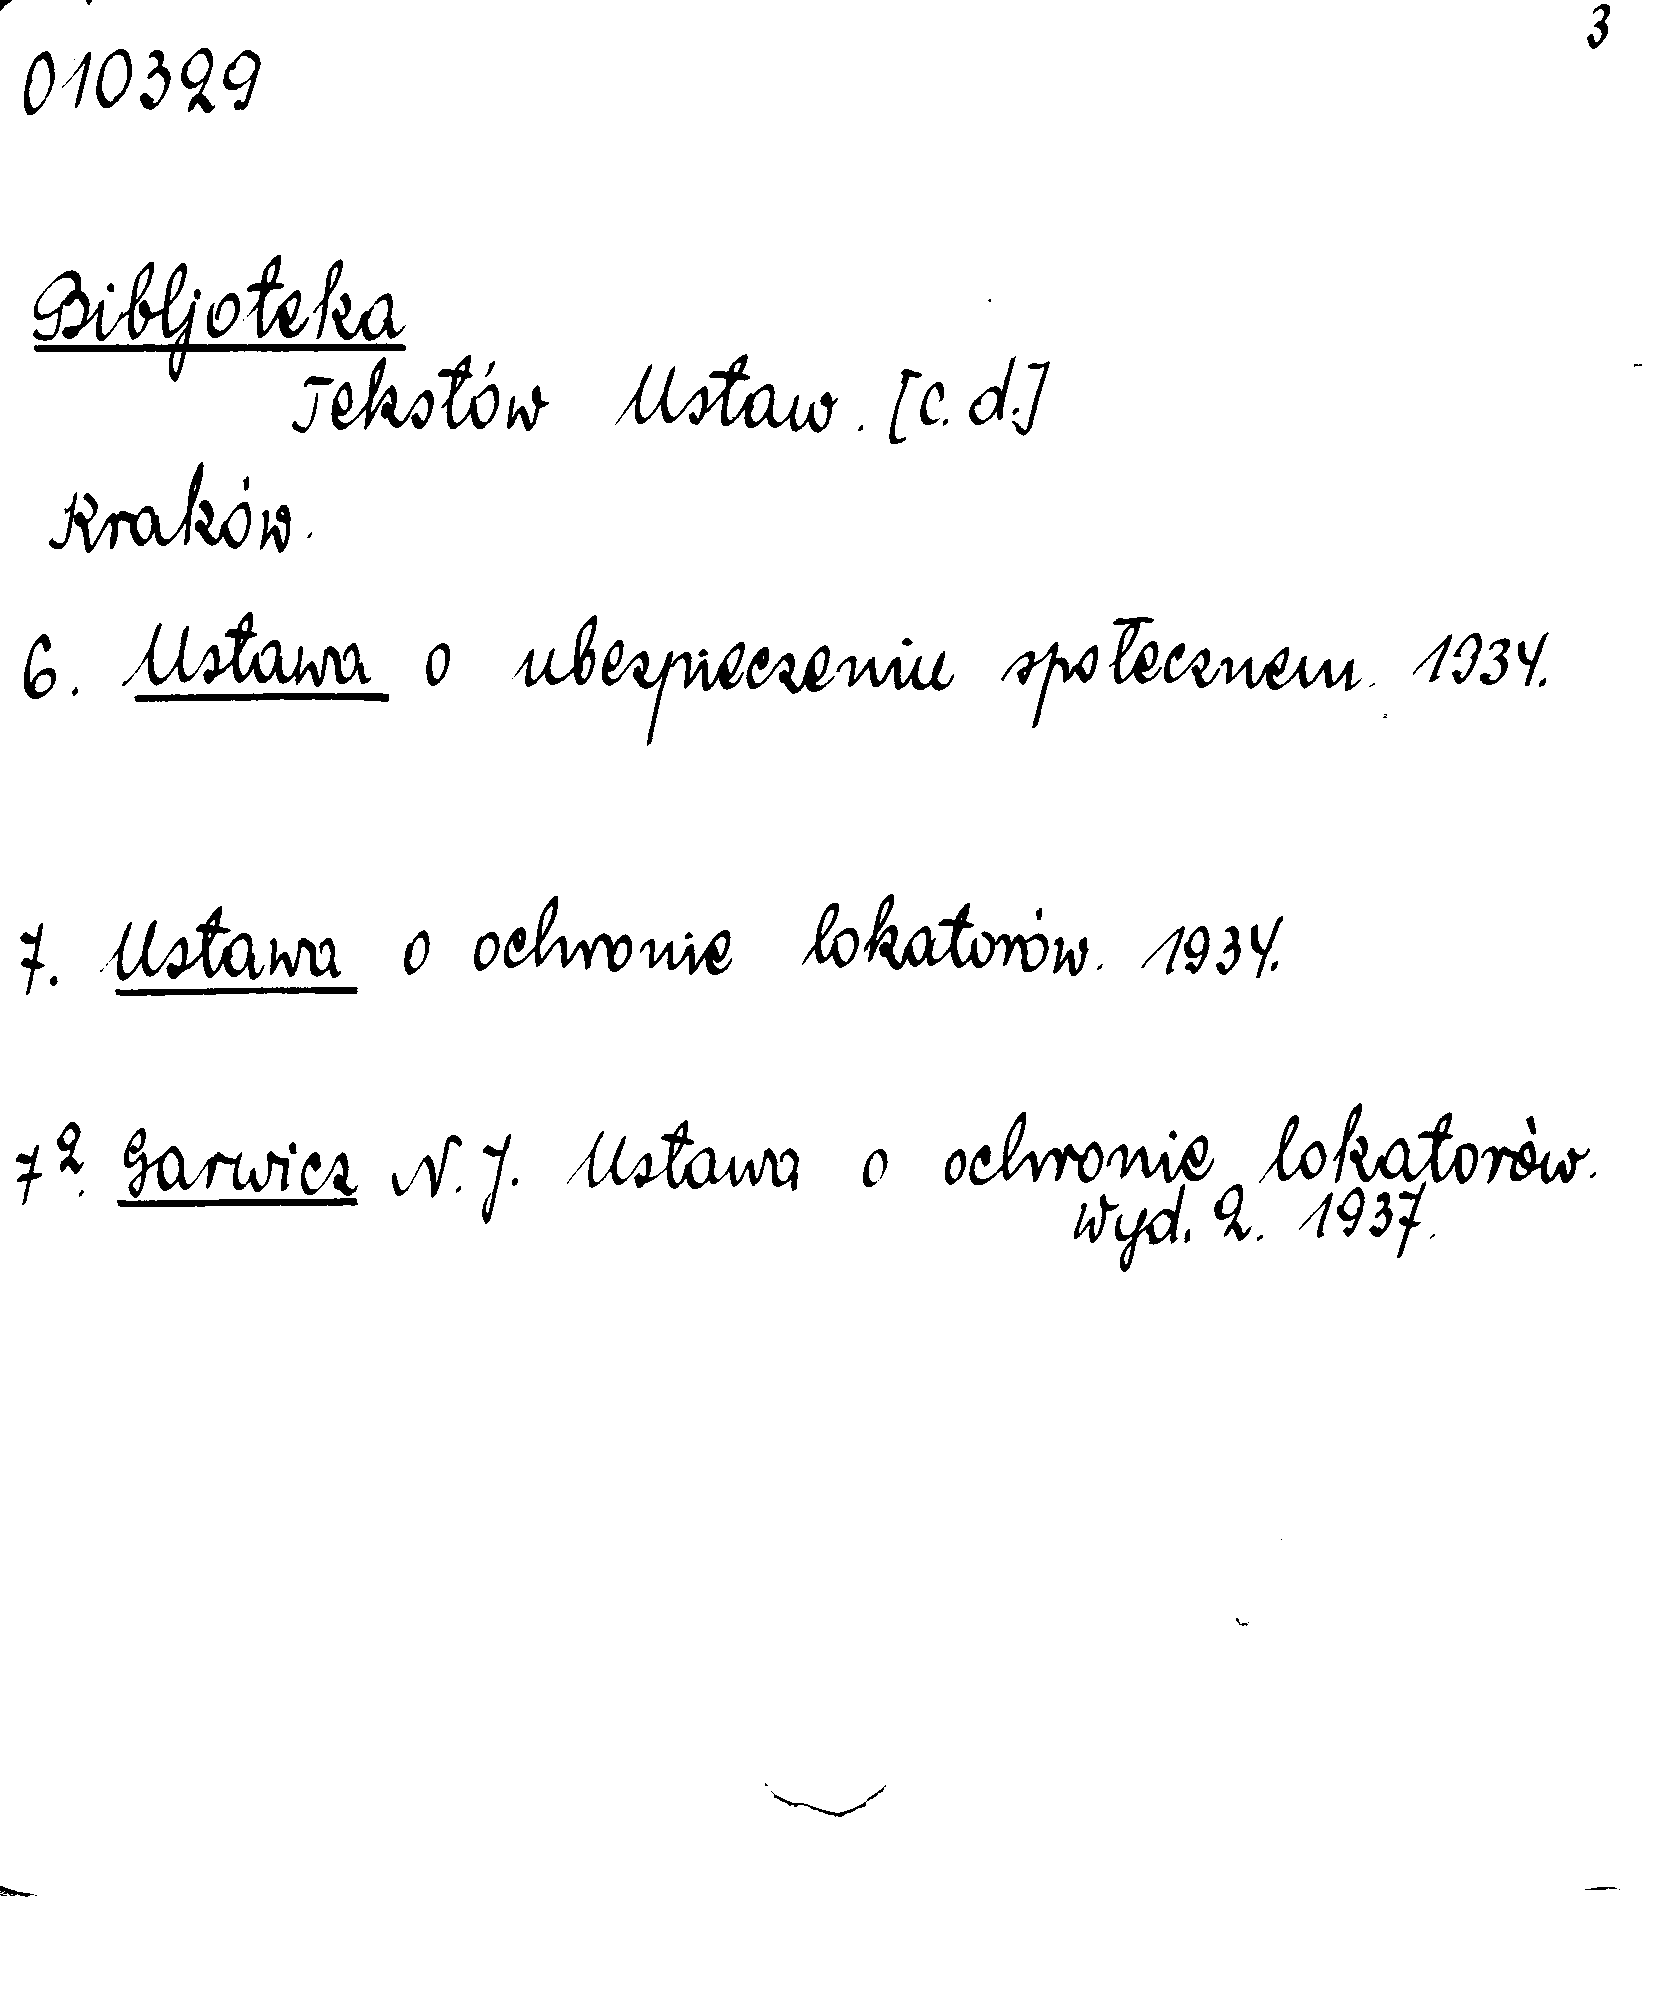 3
010329
Bibljoteka
Tekstów Ustaw. [c.d.]
Kraków.
6. Ustawa o ubezpieczeniu społecznem. 1934.
7. Ustawa o ochronie lokatorów. 1934.
7². Garwicz N. J. Ustawa o ochronie lokatorów.
wyd. 2. 1937.